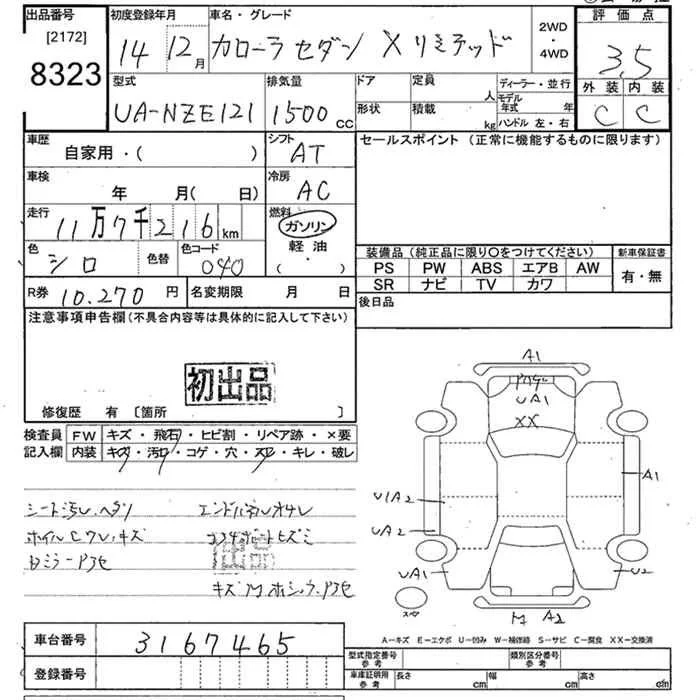 出品番号
[2172]
8323
初度登録年月
14 12月
車名・グレード
カローラ セダン Xリミテッド
2WD
・
4WD
評価点
3.5
外装 内装
C C
型式
UA-NZE121
排気量
1500 cc
ドア
形状
定員
人
積載
kg
ディーラー・並行
モデル年式 年
ハンドル 左・右
車歴
自家用・( )
シフト
AT
セールスポイント (正常に機能するものに限ります)
車検
年 月( 日)
冷房
AC
走行
11万7千216km
燃料
ガソリン
軽油
( ・ )
色
シロ
色替
色コード
040
装備品 (純正品に限り○をつけてください)
PS PW ABS エアB AW
SR ナビ TV カワ
新車保証書
有・無
R券 10.270 円
名変期限 月 日
後日品
注意事項申告欄 (不具合内容等は具体的に記入して下さい)
初出品
修復歴 有 〔箇所 〕
検査員
記入欄
FW キズ・飛石・ヒビ割・リペア跡・×要
内装 キズ・汚れ・コゲ・穴・スレ・キレ・破レ
シート汚レ、ヘタリ
ホイルCワレ、キズ
出品
A1
UA1
XX
A1
U1A2
UA2
UA1
U2
スペ
M A2
A−キズ E−エクボ U−凹み W−補修跡 S−サビ C−腐食 XX−交換済
車台番号 3167465
登録番号
型式指定番号
参考
類別区分番号
参考
車庫証明用
参考
長さ cm
幅 cm
高さ cm